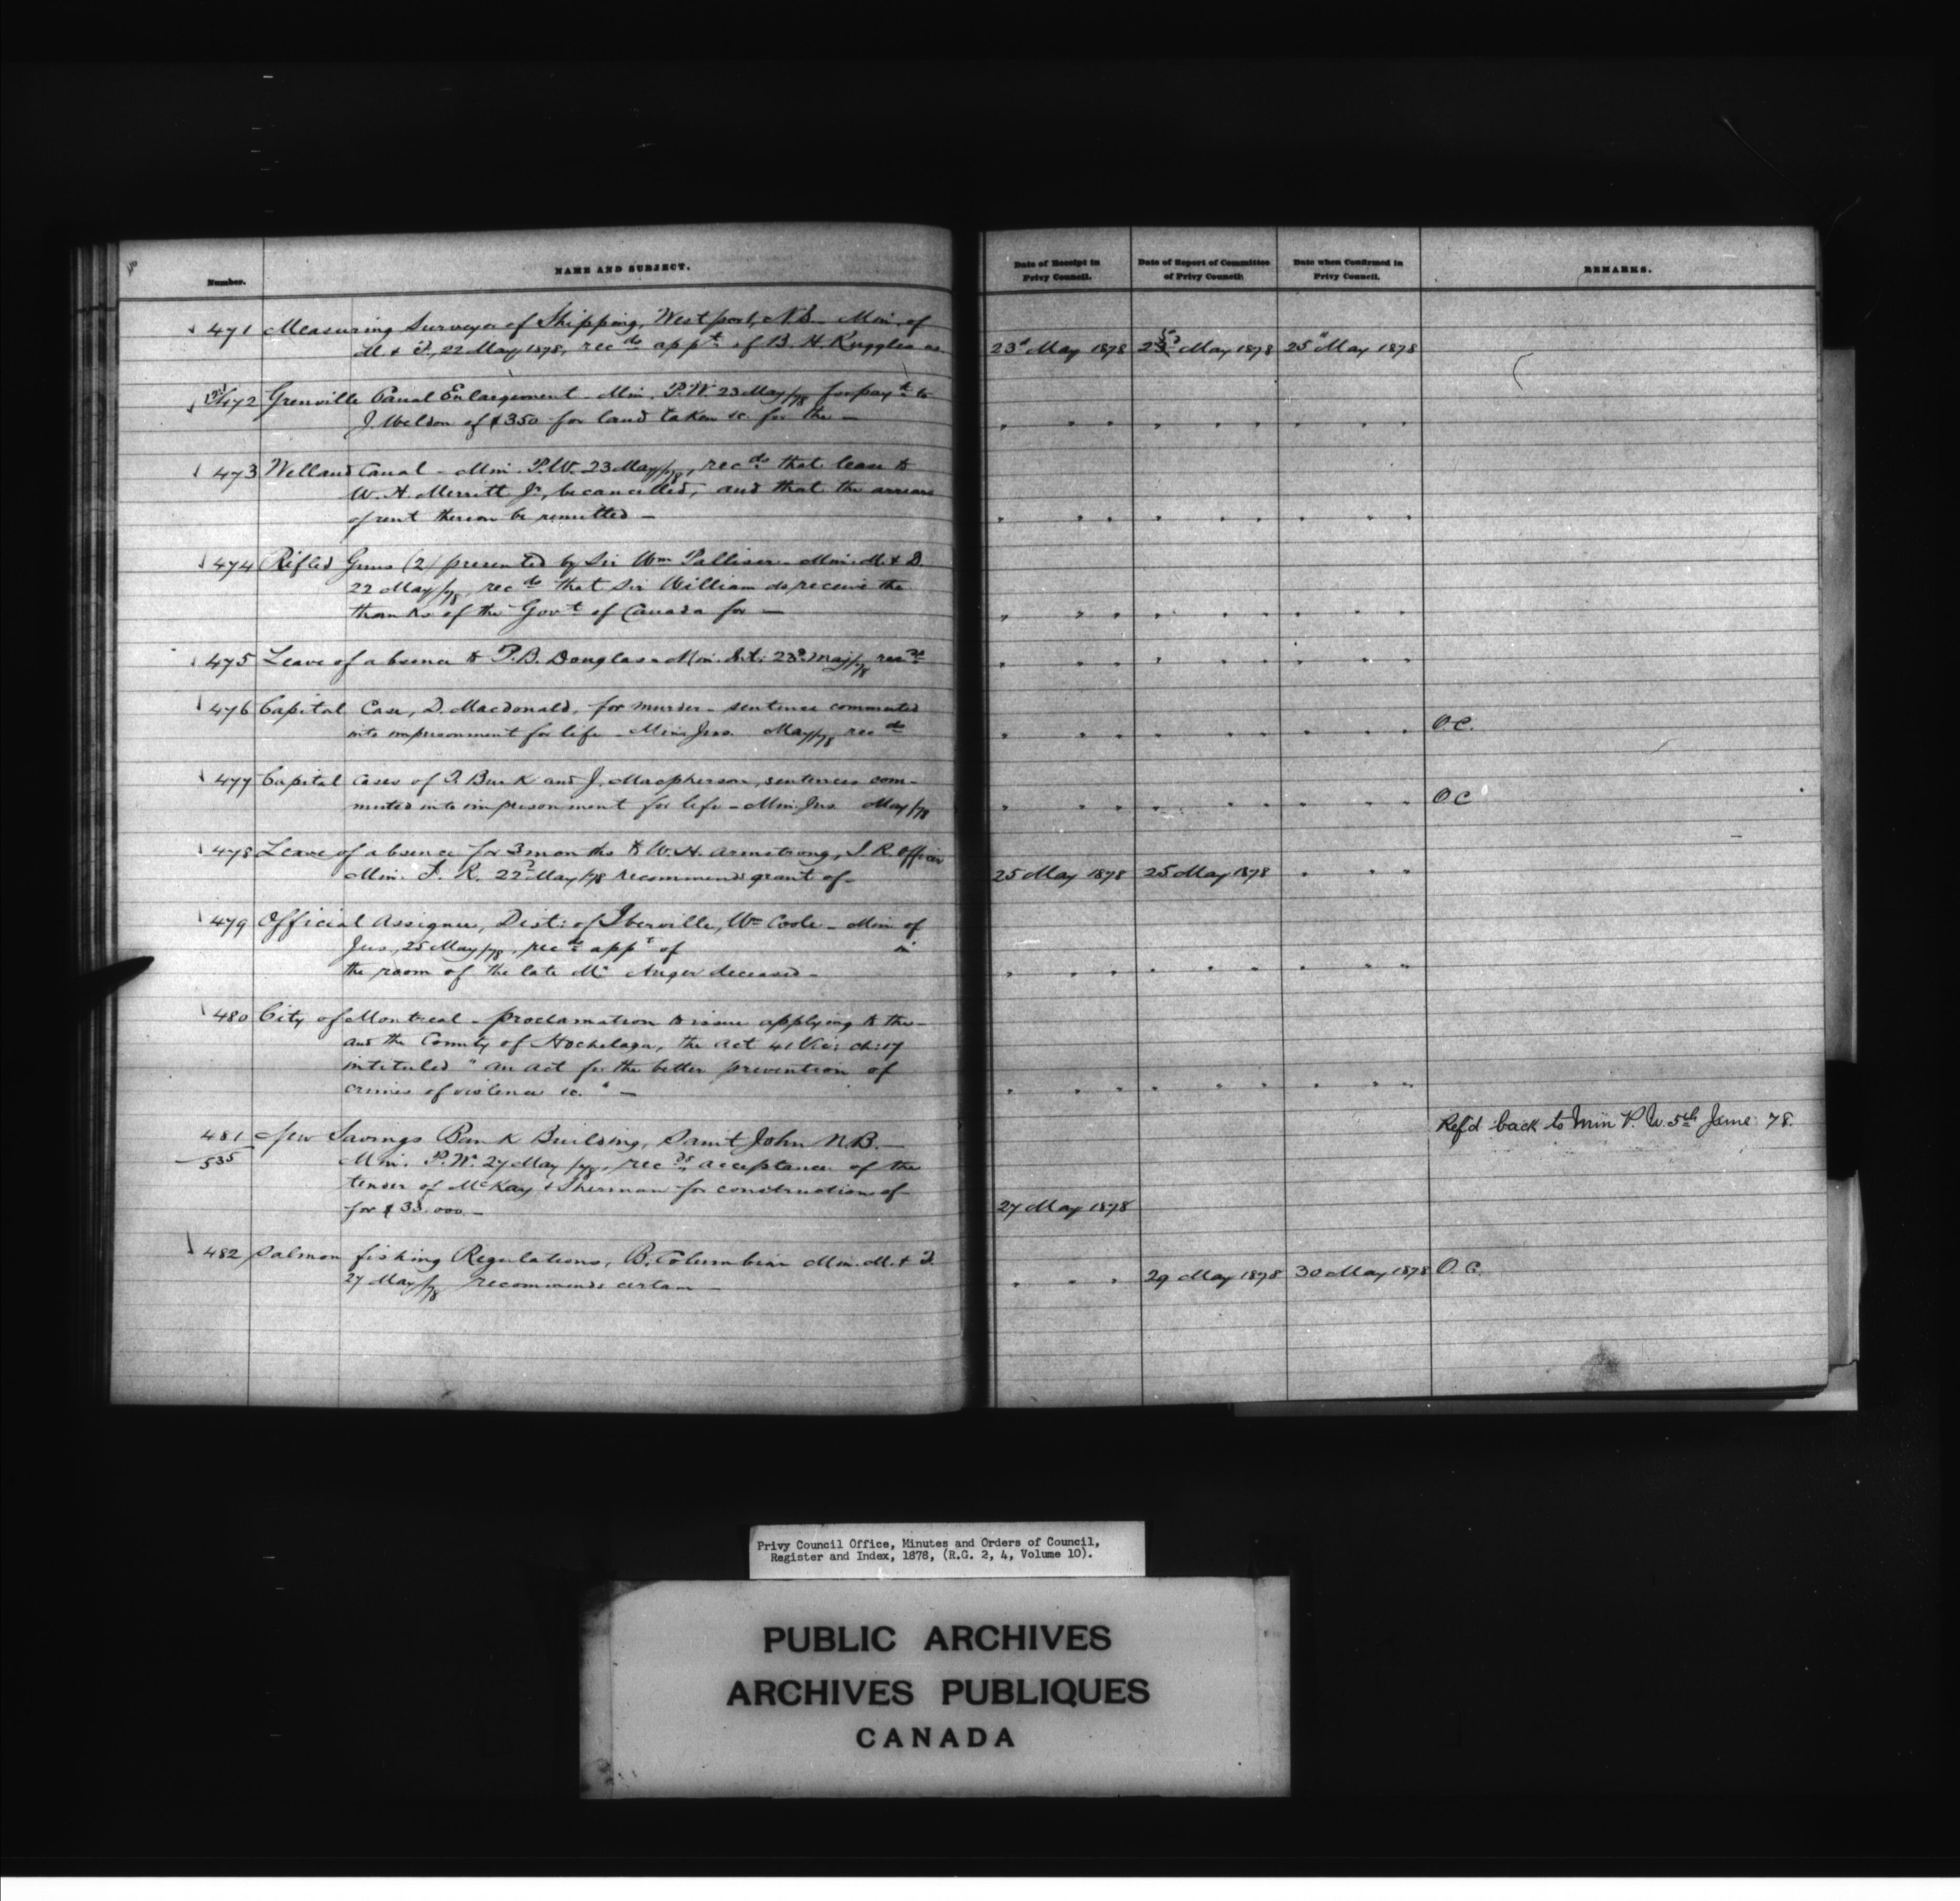 Number.
NAME AND SUBJECT.
Date of Receipt in Privy Council.
Date of Report of Committee of Privy Council.
Date when Confirmed in Privy Council.
REMARKS.
471 Measuring Surveyor of Shipping, Westport, N.S. - Min. of
M. & F., 22 May 1878, recds appt of B. H. Ruggles as
23d May 1878 25 May 1878 25" May 1878
472 Grenville Canal Enlargement - Min. P.W. 23 May/78 for payt to
J. Weldon of $350 for land taken &c. for the —
" " " " " " " " "
473 Welland Canal - Min. P.W. 23 May/78, recds that lease to
W. H. Merritt Jr, be cancelled, and that the arrears
of rent thereon be remitted —
" " " " " " " " "
474 Rifled Guns (2) presented by Sir Wm Palliser - Min. M. & D.
22 May/78, recds that Sir William do receive the
thanks of the Govt of Canada for —
" " " " " " " " "
475 Leave of absence to P.B. Douglas - Min. Int: 23d May/78 recds
" " " " " " " " "
476 Capital Case, D. Macdonald, for murder - sentence commuted
into imprisonment for life - Min. Jus. May/78 recds
" " " " " " " " " O.C.
477 Capital cases of Burk and J. Macpherson, sentences com-
muted into imprisonment for life - Min. Jus May/78
" " " " " " " " " O C
478 Leave of absence for 3 months to W. H. Armstrong, I. R. Officer
Min. I. R. 22d May/78 recommends grant of -
25 May 1878 25 May 1878 " " "
479 Official Assignee, Dist: of Iberville, Wm Coote - Min of
Jus., 25 May/78, recds appt of in
the room of the late Mr Auger deceased -
" " " " " " " " "
480 City of Montreal - proclamation to issue applying to the -
and the County of Hochelaga, the act 41 Vic: ch: 17
intituled "an act for the better prevention of
crimes of violence &c." —
" " " " " " " " "
481 New Savings Bank Building, Saint John N.B. —
535
Refd back to Min P. W. 5th June 78.
Min. P.W. 27 May/78, recds acceptance of the
tender of McKay & Sherman for construction of
for $33.000 -
27 May 1878
482 Salmon fishing Regulations, B. Columbia Min. M. & F.
27 May/78 recommends certain —
" " " 29 May 1878 30 May 1878 O. C.
Privy Council Office, Minutes and Orders of Council,
Register and Index, 1878, (R.G. 2, 4, Volume 10).
PUBLIC ARCHIVES
ARCHIVES PUBLIQUES
CANADA